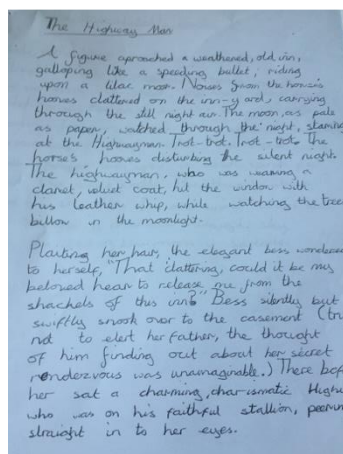 The Highway Man
A figure aproached a weathered, old inn,
galloping like a speeding bullet, riding
upon a lilac moon. Noises from the horse's
hooves clattered on the inn-yard, carrying
through the still night air. The moon, as pale
as paper, watched through the night, staring
at the Highwayman. Trot-trot. Trot-trot. The
horse's hooves disturbing the silent night.
The highwayman, who was wearing a
claret, velvet coat, hit the window with
his leather whip, while watching the tree
billow in the moonlight.
Plaiting her hair, the elegant bess wondered
to herself, "That clattering, could it be my
beloved hear to release me from the
shackels of this inn?" Bess silently but
swiftly snook over to the casement (try
not to elert her father, the thought
of him finding out about her secret
rendezvous was unamaginable.) There bef
her sat a charming, charismatic Highw
who was on his faithful stallion, peering
straight in to her eyes.